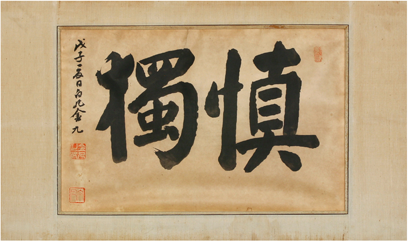 愼獨
戊子二春日白凡金九